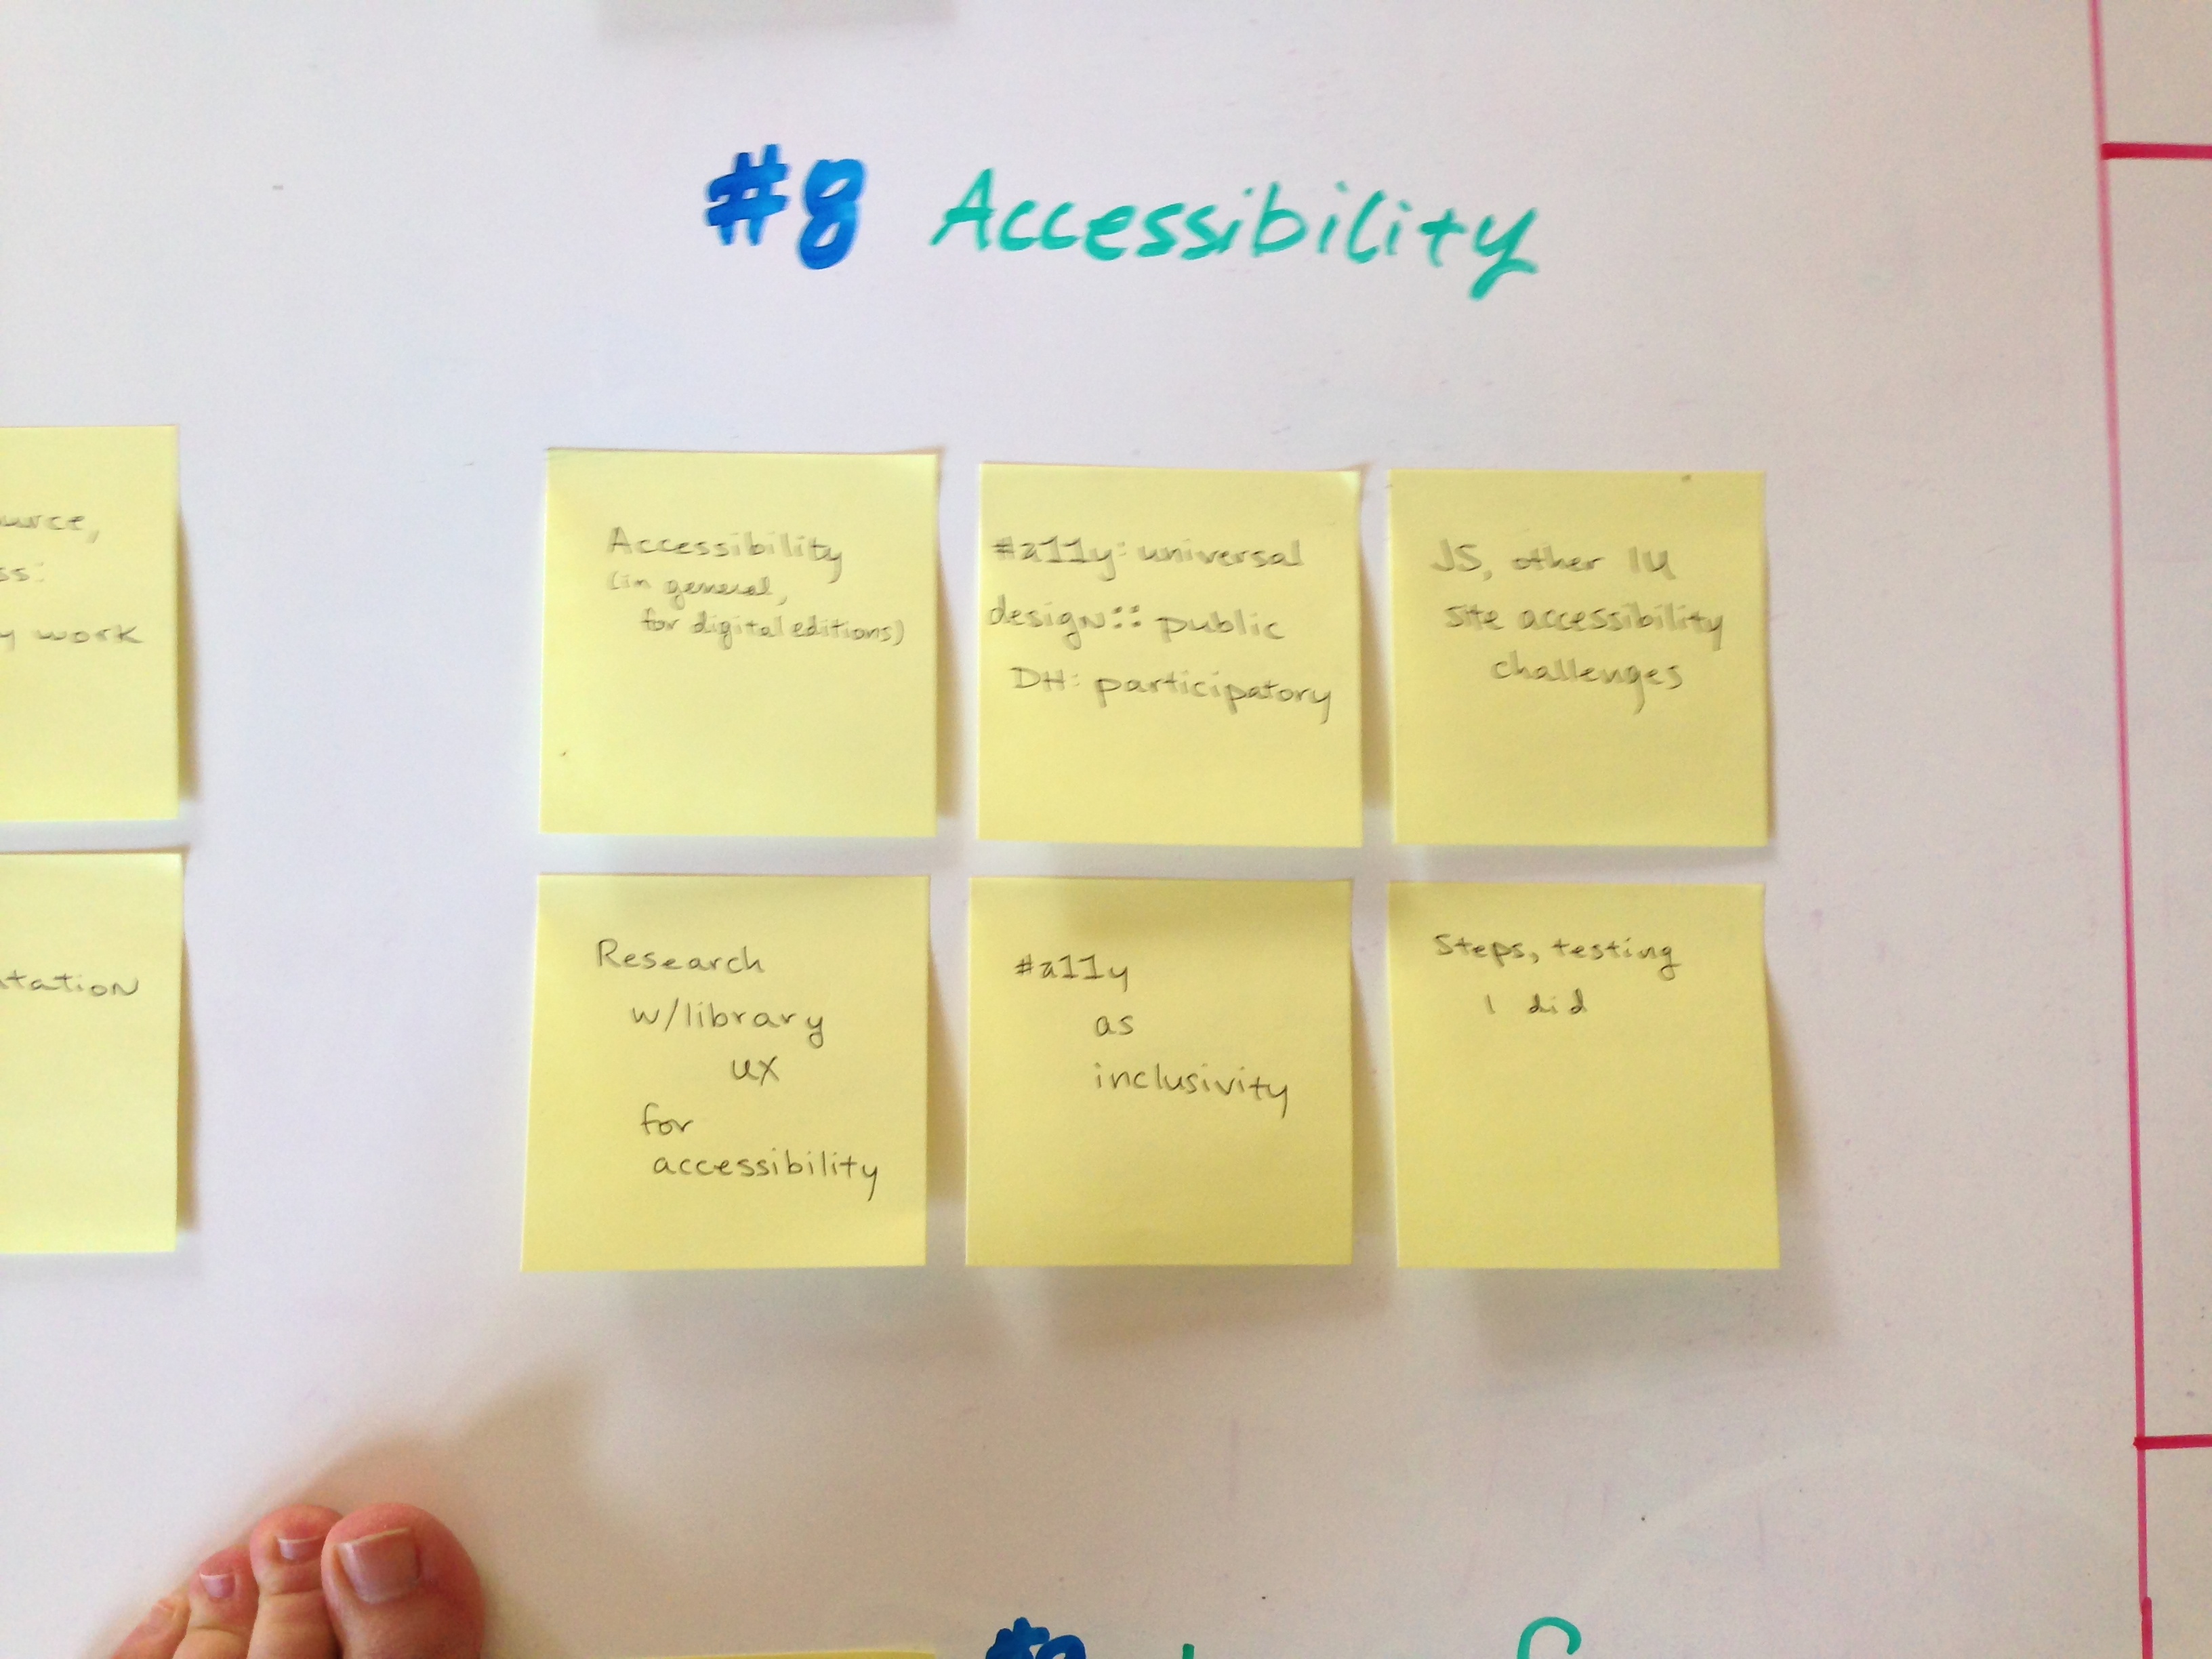 #8 Accessibility
Accessibility
(in general,
for digital editions)
#a11y: universal
design:: public
DH: participatory
JS, other IU
site accessibility
challenges
work
Research
w/library
UX
for
accessibility
#a11y
as
inclusivity
Steps, testing
I did